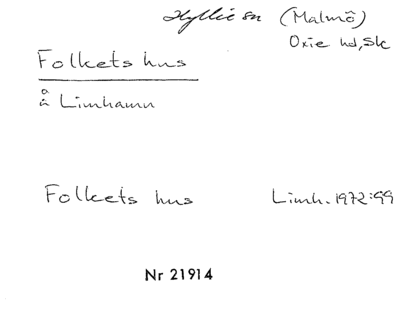 Hyllie sn (Malmö)
Oxie hd, Sk
Folkets hus
å Limhamn
Folkets hus Limh. 1972:99
Nr 21914